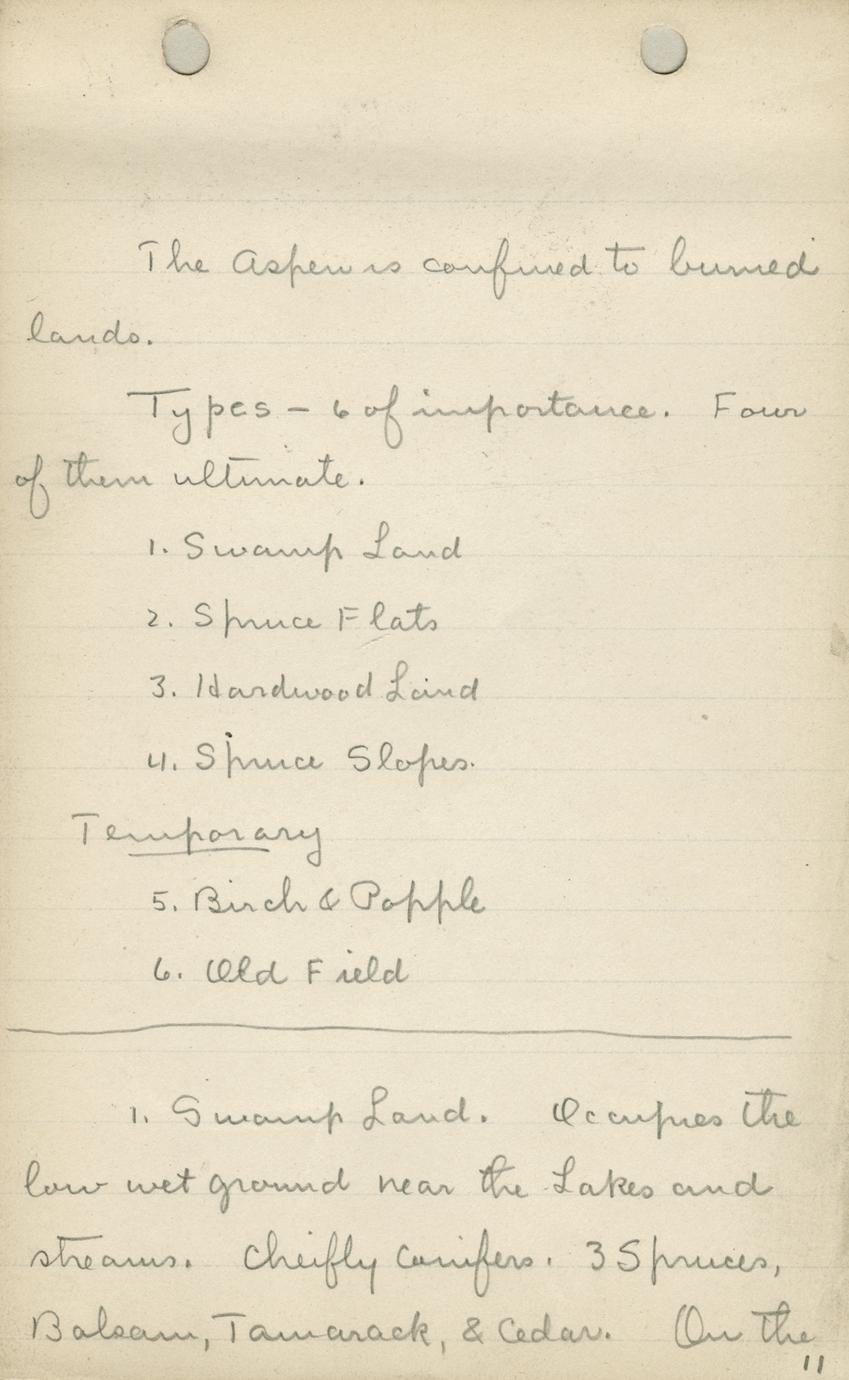 The Aspen is confined to burned
lands.
Types - 6 of importance. Four
of them ultimate.
1. Swamp Land
2. Spruce Flats
3. Hardwood Land
4. Spruce Slopes.
Temporary
5. Birch & Popple
6. Old Field
1. Swamp Land. Occupies the
low wet ground near the Lakes and
streams. Cheifly Conifers. 3 Spruces,
Balsam, Tamarack, & Cedar. On the
11